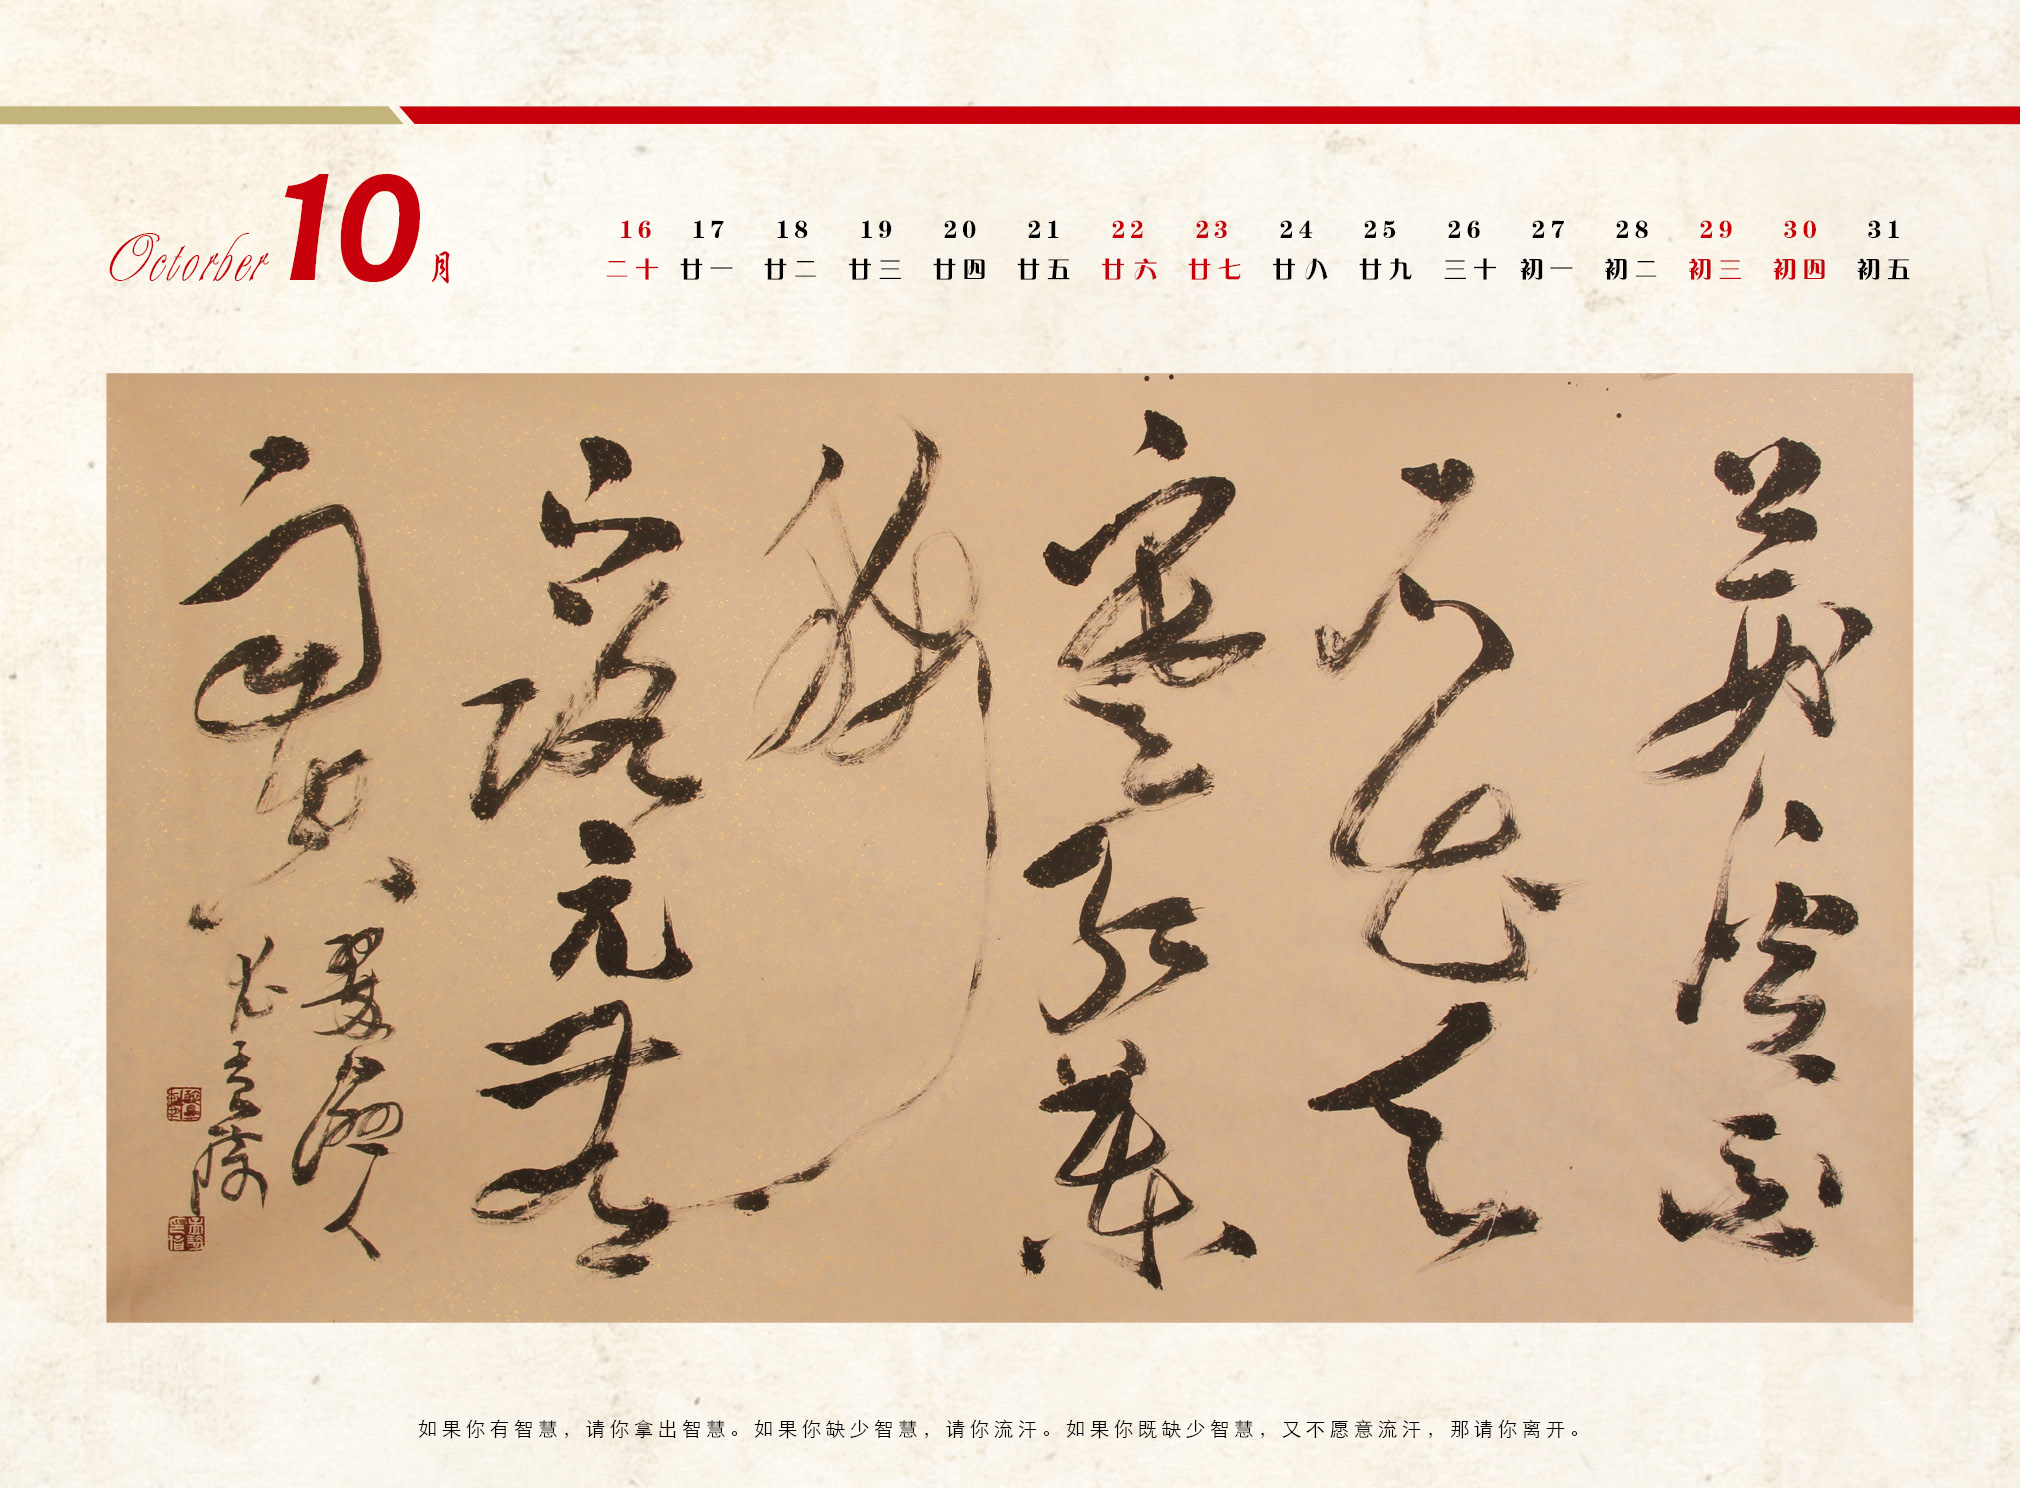 Octorber 10月
16 17 18 19 20 21 22 23 24 25 26 27 28 29 30 31
二十 廿一 廿二 廿三 廿四 廿五 廿六 廿七 廿八 廿九 三十 初一 初二 初三 初四 初五
荆溪白
石出天
寒红叶
稀
山路元无
雨空
翠湿人
衣
如果你有智慧，请你拿出智慧。如果你缺少智慧，请你流汗。如果你既缺少智慧，又不愿意流汗，那请你离开。